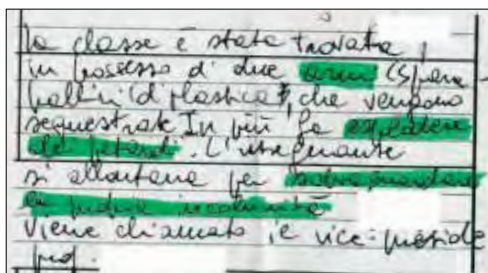 la classe è stata trovata
in possesso di due armi (spara
pallini di plastica), che vengono
sequestrate. In più fa esplodere
dei petardi. L'insegnante
si allontana per salvaguardare
la propria incolumità
Viene chiamato il vice-preside